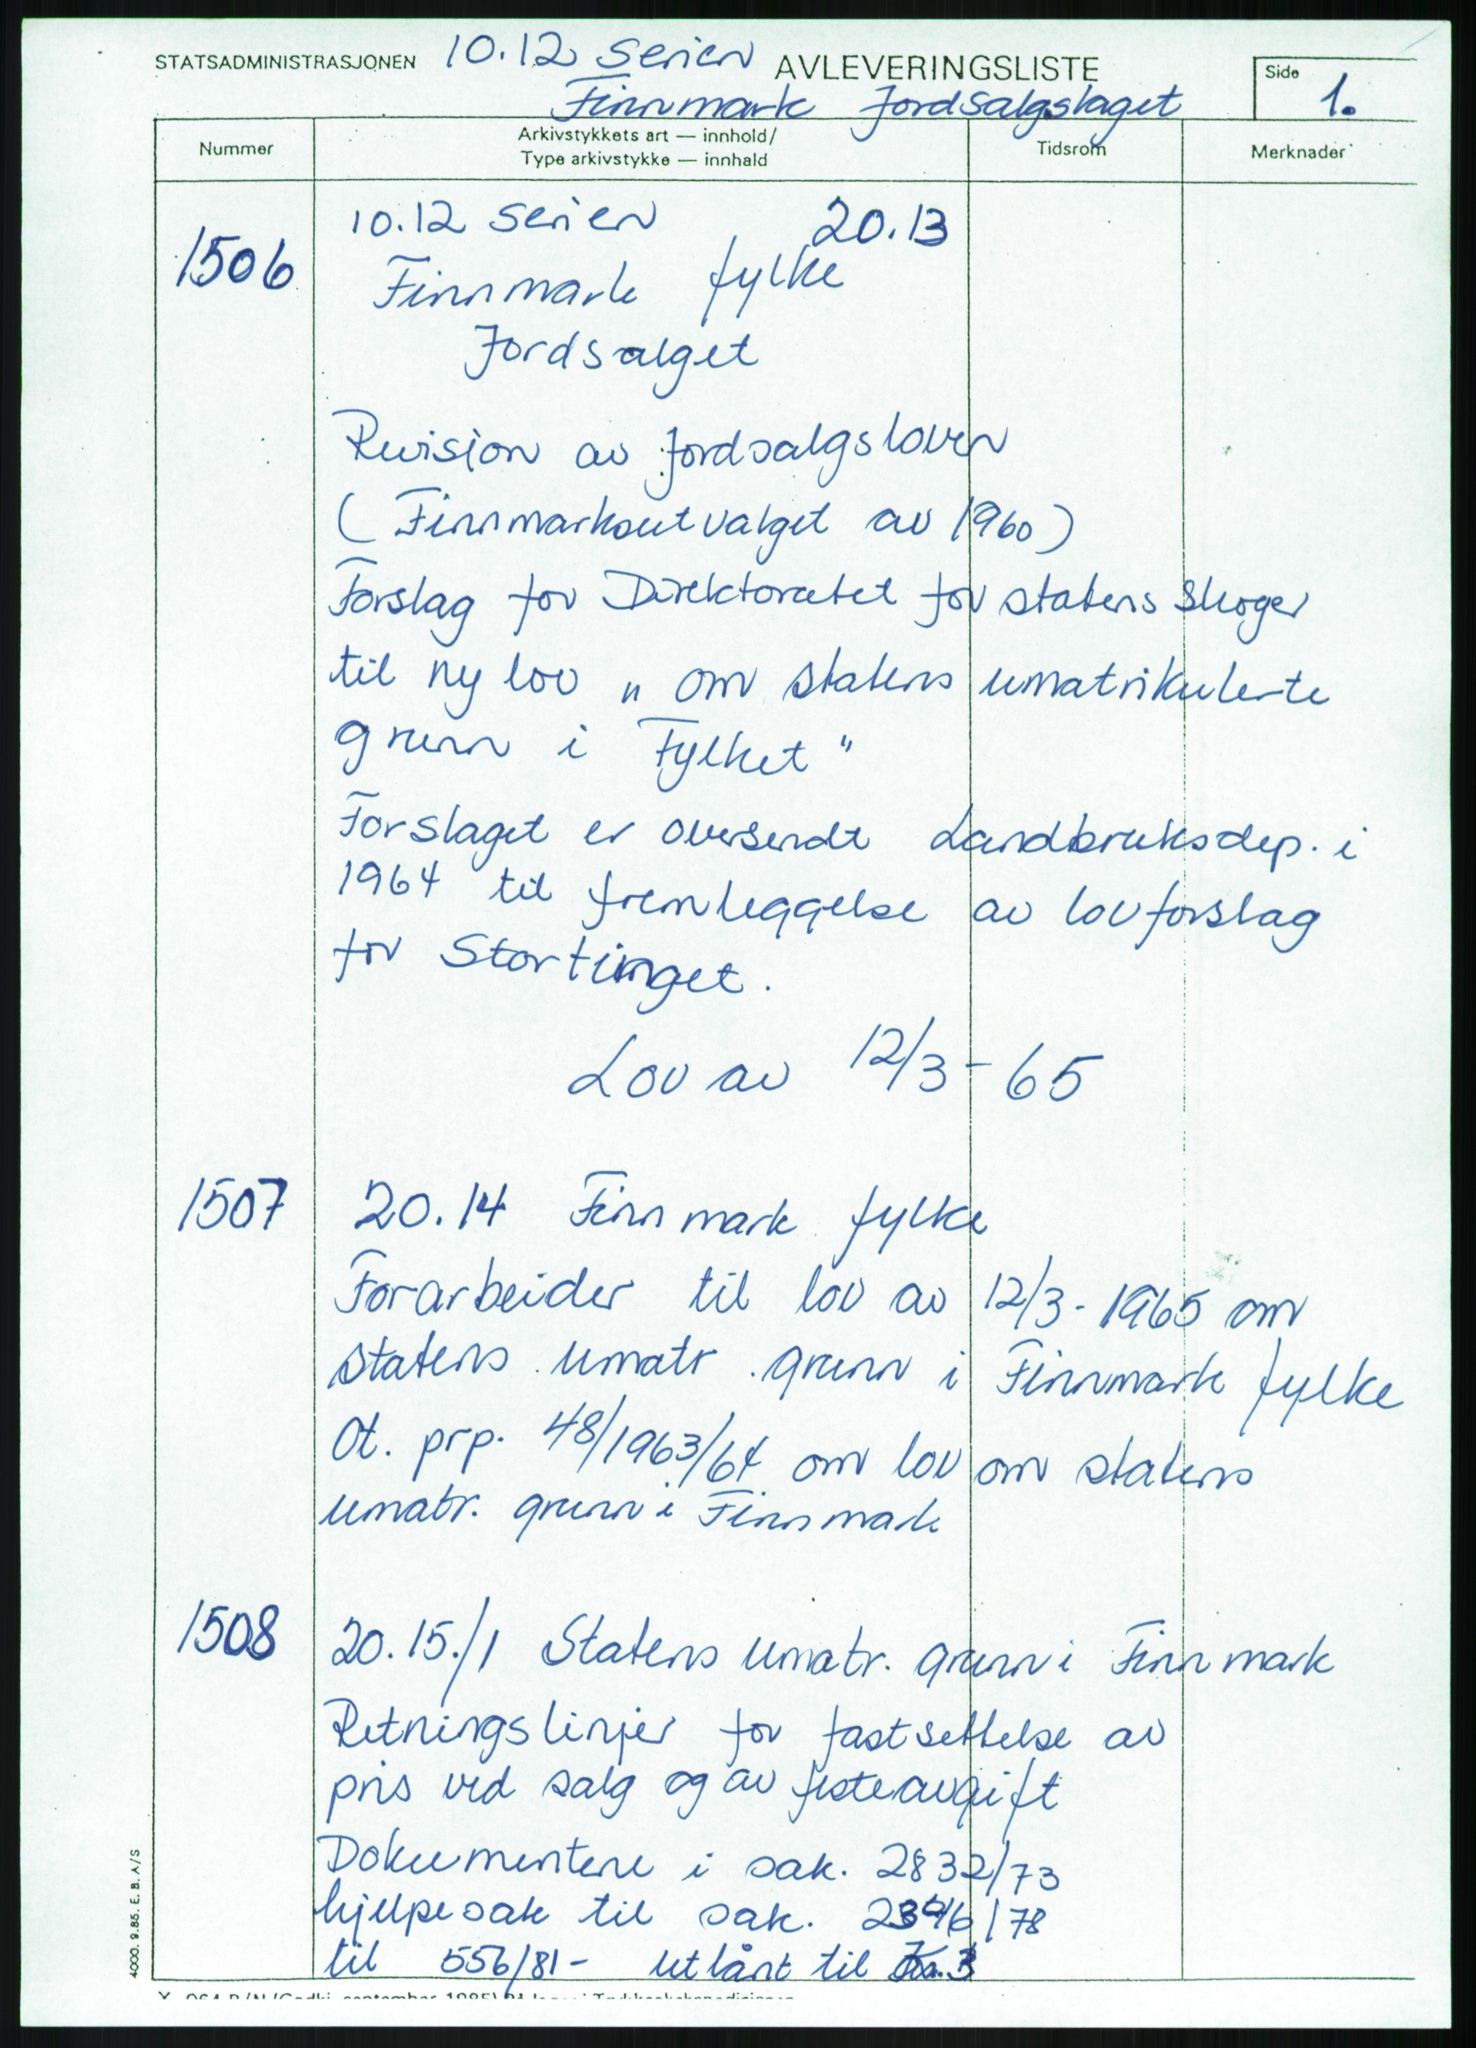 STATSADMINISTRASJONEN 10.12 serien AVLEVERINGSLISTE Side 1.
Finnmark Jordsalgslaget
Nummer Arkivstykkets art — innhold/ Tidsrom Merknader
Type arkivstykke — innhald
1506 10.12 serien 20.13
Finnmark fylke
Jordsalget
Revisjon av jordsalgsloven
(Finnmarksutvalget av 1960)
Forslag for Direktoratet for statens Skoger
til ny lov „ om statens umatrikulerte
grunn i Fylket "
Forslaget er oversendt Landbruksdep. i
1964 til fremleggelse av lovforslag
for Stortinget.
Lov av 12/3-65
1507 20.14 Finnmark fylke
Forarbeider til lov av 12/3-1965 om
statens umatr. grunn i Finnmark fylke
Ot. prp. 48/1963/64 om lov om statens
umatr. grunn i Finnmark
1508 20.15./1 Statens umatr. grunn i Finnmark
Retningslinjer for fastsettelse av
pris ved salg og av festeavgift
Dokumentene i sak. 2832/73
hjelpesak til sak. /78
til 556/81- utlånt til
4000. 9.85. E. B. A/S